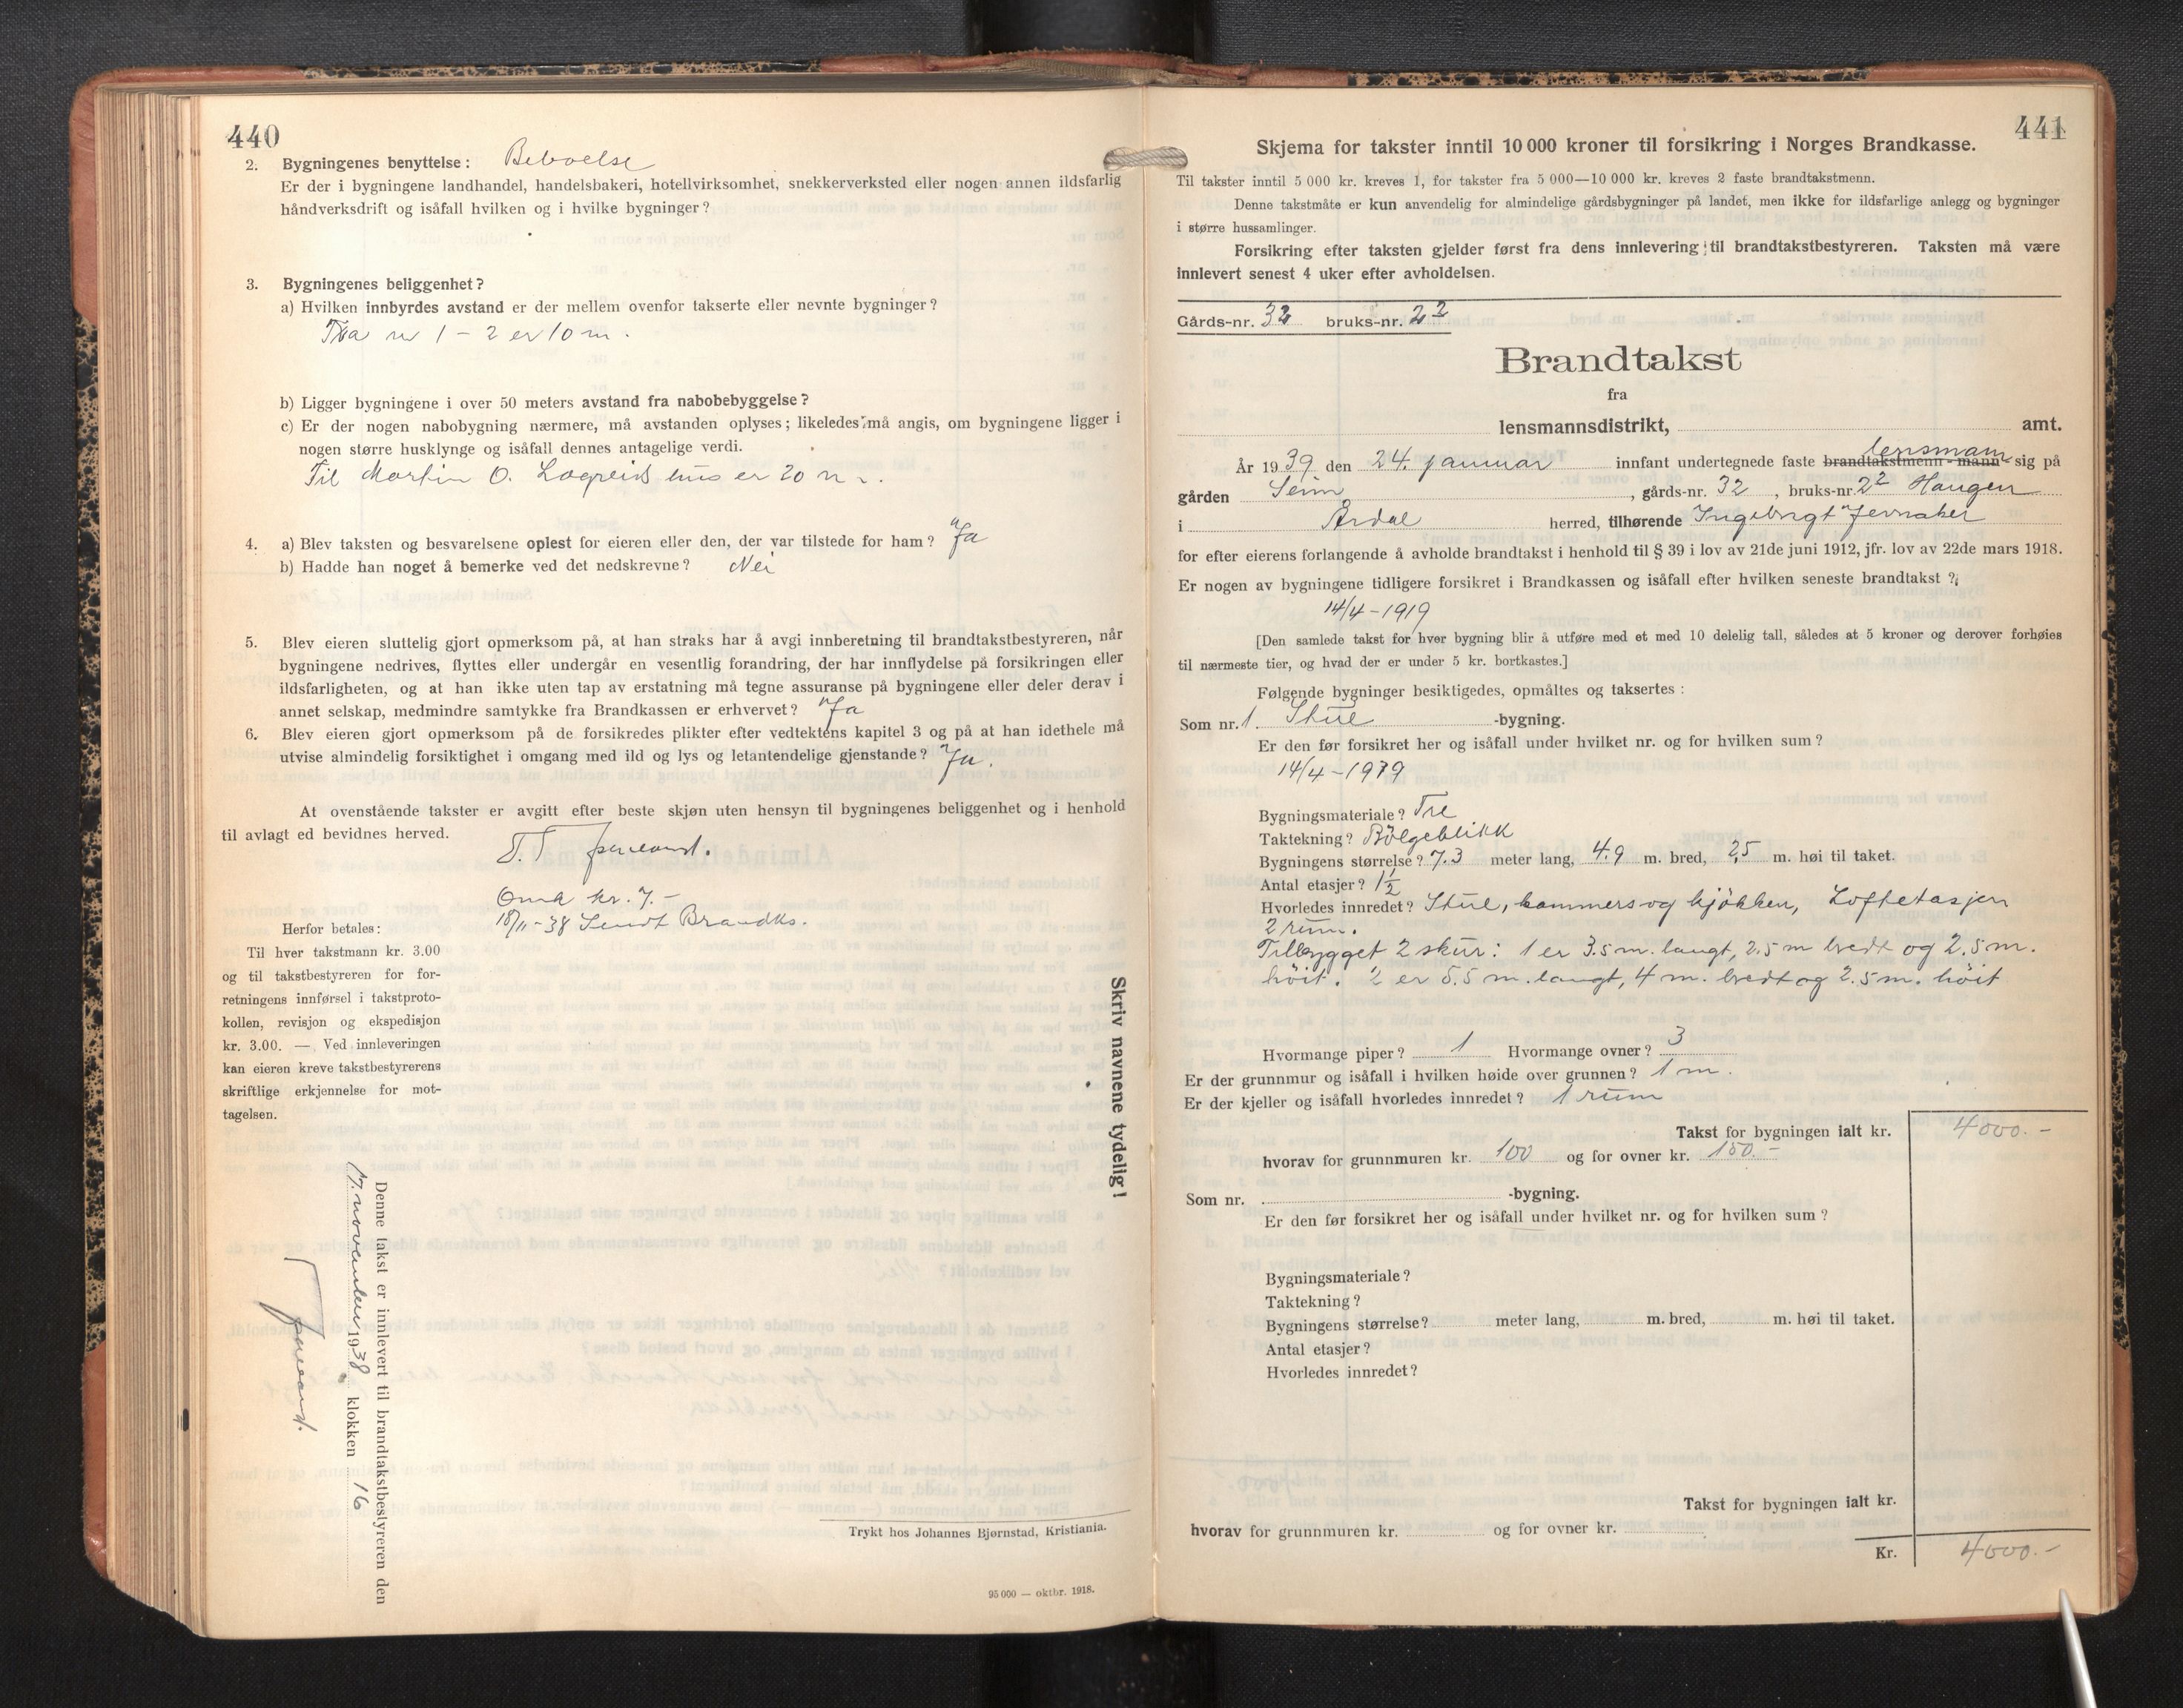 440
2. Bygningenes benyttelse: Beboelse
Er der i bygningene landhandel, handelsbakeri, hotellvirksomhet, snekkerverksted eller nogen annen ildsfarlig
håndverksdrift og isåfall hvilken og i hvilke bygninger?
3. Bygningenes beliggenhet?
a) Hvilken innbyrdes avstand er der mellem ovenfor takserte eller nevnte bygninger?
Fra nr 1 - 2 er 10 m.
b) Ligger bygningene i over 50 meters avstand fra nabobebyggelse?
c) Er der nogen nabobygning nærmere, må avstanden oplyses; likeledes må angis, om bygningene ligger i
nogen større husklynge og isåfall dennes antagelige verdi.
Til Martin O. Lægreids hus er 20 m.
4. a) Blev taksten og besvarelsene oplest for eieren eller den, der var tilstede for ham? Ja
b) Hadde han noget å bemerke ved det nedskrevne? Nei
5. Blev eieren sluttelig gjort opmerksom på, at han straks har å avgi innberetning til brandtakstbestyreren, når
bygningene nedrives, flyttes eller undergår en vesentlig forandring, der har innflydelse på forsikringen eller
ildsfarligheten, og at han ikke uten tap av erstatning må tegne assuranse på bygningene eller deler derav i
annet selskap, medmindre samtykke fra Brandkassen er erhvervet? Ja
6. Blev eieren gjort opmerksom på de forsikredes plikter efter vedtektens kapitel 3 og på at han idethele må
utvise almindelig forsiktighet i omgang med ild og lys og letantendelige gjenstande? Ja.
At ovenstående takster er avgitt efter beste skjøn uten hensyn til bygningenes beliggenhet og i henhold
til avlagt ed bevidnes herved.
Omk kr. 7.-
18/11-38 Sendt Brandks.
Herfor betales:
Til hver takstmann kr. 3.00
og til takstbestyreren for for-
retningens innførsel i takstproto-
kollen, revisjon og ekspedisjon
kr. 3.00. — Ved innleveringen
kan eieren kreve takstbestyrerens
skriftlige erkjennelse for mot-
tagelsen.
Skriv navnene tydelig!
Denne takst er innlevert til brandtakstbestyreren den
17. november 1938 klokken 16
Trykt hos Johannes Bjørnstad, Kristiania.
95 000 — oktbr. 1918.
441
Skjema for takster inntil 10 000 kroner til forsikring i Norges Brandkasse.
Til takster inntil 5 000 kr. kreves 1, for takster fra 5 000—10 000 kr. kreves 2 faste brandtakstmenn.
Denne takstmåte er kun anvendelig for almindelige gårdsbygninger på landet, men ikke for ildsfarlige anlegg og bygninger
i større hussamlinger.
Forsikring efter taksten gjelder først fra dens innlevering til brandtakstbestyreren. Taksten må være
innlevert senest 4 uker efter avholdelsen.
Gårds-nr. 32 bruks-nr. 22
Brandtakst
fra
lensmannsdistrikt, amt.
lensmann
År 1939 den 24. januar innfant undertegnede faste brandtakstmenn - mann - sig på
gården Seim, gårds-nr. 32, bruks-nr. 22 Haugen
i Årdal herred, tilhørende Ingebrigt Jevnaker
for efter eierens forlangende å avholde brandtakst i henhold til § 39 i lov av 21de juni 1912, jfr. lov av 22de mars 1918.
Er nogen av bygningene tidligere forsikret i Brandkassen og isåfall efter hvilken seneste brandtakst?
14/4-1919
[Den samlede takst for hver bygning blir å utføre med et med 10 delelig tall, således at 5 kroner og derover forhøies
til nærmeste tier, og hvad der er under 5 kr. bortkastes.]
Følgende bygninger besiktigedes, opmåltes og taksertes:
Som nr. 1. Stue -bygning.
Er den før forsikret her og isåfall under hvilket nr. og for hvilken sum?
14/4-1919
Bygningsmateriale? Tre
Taktekning? Bölgeblikk
Bygningens størrelse? 7.3 meter lang, 4.9 m. bred, 2,5 m. høi til taket.
Antal etasjer? 1½
Hvorledes innredet? Stue, kammers og kjökken, Loftetasjen
2 rum.
Tilbygget 2 skur: 1 er 3.5 m. langt, 2.5 m bredt og 2.5 m.
höit. 2 er 5.5 m. langt, 4 m. bredt og 2.5 m. höit
Hvormange piper? 1 Hvormange ovner? 3
Er der grunnmur og isåfall i hvilken høide over grunnen? 1 m.
Er der kjeller og isåfall hvorledes innredet? 1 rum
Takst for bygningen ialt kr. 4000.-
hvorav for grunnmuren kr. 100 og for ovner kr. 150.-
Som nr. -bygning.
Er den før forsikret her og isåfall under hvilket nr. og for hvilken sum?
Bygningsmateriale?
Taktekning?
Bygningens størrelse? meter lang, m. bred, m. høi til taket.
Antal etasjer?
Hvorledes innredet?
Takst for bygningen ialt kr.
hvorav for grunnmuren kr. og for ovner kr.
Kr. 4000.-